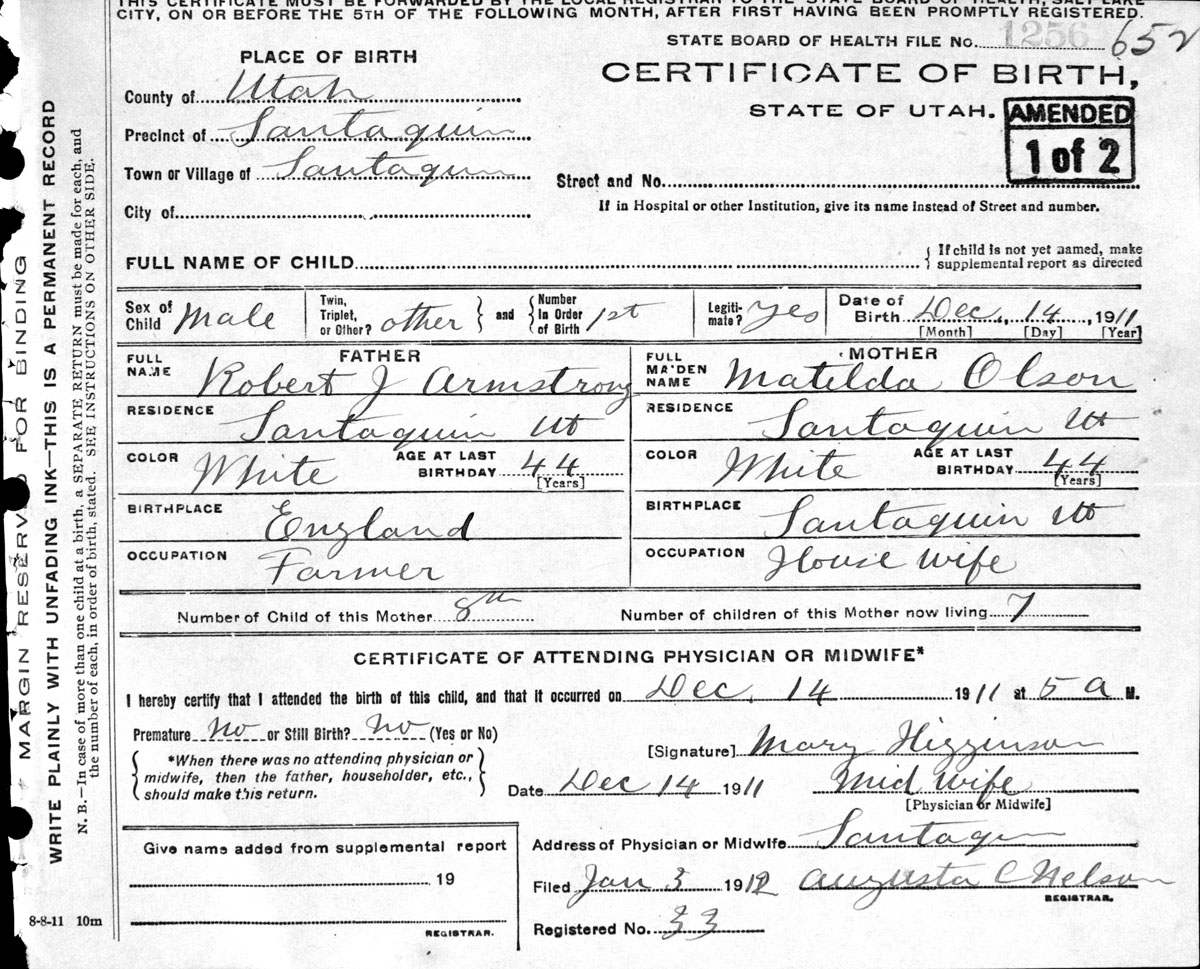 THIS CERTIFICATE MUST BE FORWARDED BY THE LOCAL REGISTRAR TO THE STATE BOARD OF HEALTH, SALT LAKE
CITY, ON OR BEFORE THE 5TH OF THE FOLLOWING MONTH, AFTER FIRST HAVING BEEN PROMPTLY REGISTERED.
STATE BOARD OF HEALTH FILE No. 1256 652
PLACE OF BIRTH
CERTIFICATE OF BIRTH,
STATE OF UTAH.
AMENDED
1 of 2
County of Utah
Precinct of Santaquin
Town or Village of Santaquin
Street and No.
City of
If in Hospital or other Institution, give its name instead of Street and number.
FULL NAME OF CHILD
{ If child is not yet named, make
supplemental report as directed
Sex of Child Male
Twin, Triplet, or Other? other } and { Number In Order of Birth 1st
Legiti-mate? Yes
Date of Birth Dec, 14, 1911
[Month] [Day] [Year]
FATHER
FULL NAME Robert J Armstrong
RESIDENCE Santaquin Ut
COLOR White AGE AT LAST BIRTHDAY 44
[Years]
BIRTHPLACE England
OCCUPATION Farmer
MOTHER
FULL MAIDEN NAME Matilda Olson
RESIDENCE Santaquin Ut
COLOR White AGE AT LAST BIRTHDAY 44
[Years]
BIRTHPLACE Santaquin Ut
OCCUPATION House wife
Number of Child of this Mother 8th Number of children of this Mother now living 7
CERTIFICATE OF ATTENDING PHYSICIAN OR MIDWIFE*
I hereby certify that I attended the birth of this child, and that it occurred on Dec, 14 1911 at 5 a M.
Premature No or Still Birth? No (Yes or No)
{ *When there was no attending physician or
midwife, then the father, householder, etc.,
should make this return. }
[Signature] Mary Higginson
Date Dec 14 1911 Mid wife
[Physician or Midwife]
Give name added from supplemental report
19
REGISTRAR.
Address of Physician or Midwife Santaqn
Filed Jan 3 1912 Augusta C Nelson
REGISTRAR.
Registered No. 33
8-8-11 10m
MARGIN RESERVED FOR BINDING
WRITE PLAINLY WITH UNFADING INK—THIS IS A PERMANENT RECORD
N. B.—In case of more than one child at a birth, a SEPARATE RETURN must be made for each, and
the number of each, in order of birth, stated. SEE INSTRUCTIONS ON OTHER SIDE.